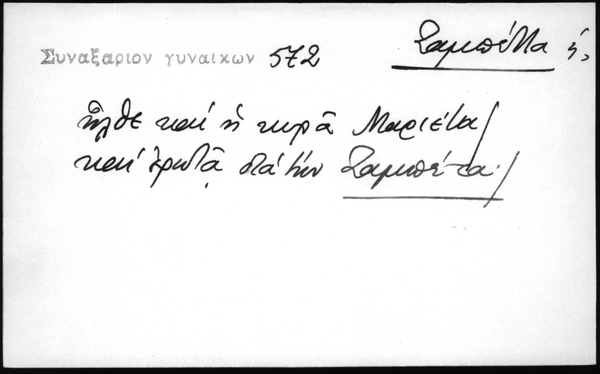 Συναξαριον γυναικων 572 Σαμπέττα ἡ,
ἦλθε καί ἡ κυρᾶ Μαριέτα/
καί ἐρωτᾷ διά τήν Σαμπέτα·/